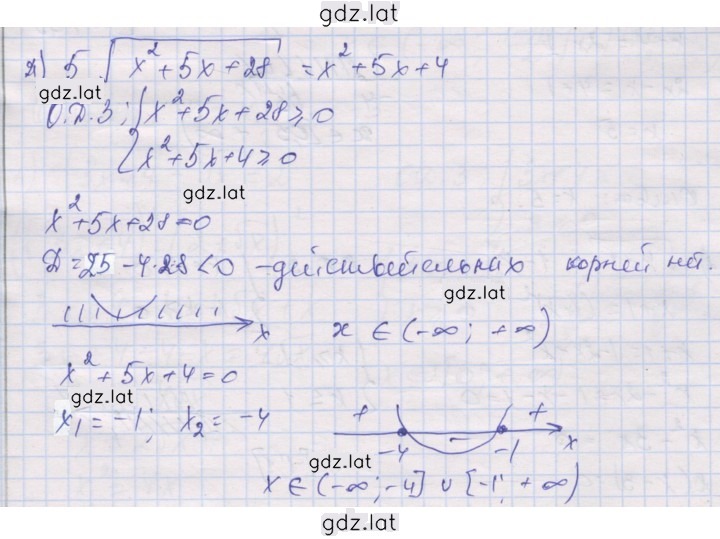 gdz.lat
д) 5 √x²+5x+28 = x²+5x+4
gdz.lat
О.Д.З: { x²+5x+28 ⩾ 0
x²+5x+4 ⩾ 0
gdz.lat
x²+5x+28=0
D=25-4·28<0 -действительных корней нет.
gdz.lat
x
x ∈ (-∞; +∞)
x²+5x+4=0
gdz.lat
x₁=-1; x₂=-4
+ - +
-4 -1 x
gdz.lat
x ∈ (-∞; -4] ∪ [-1; +∞)
gdz.lat